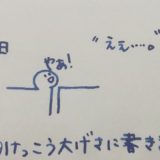 日
"ええ…。
やぁ!
けっこう大げさに書き